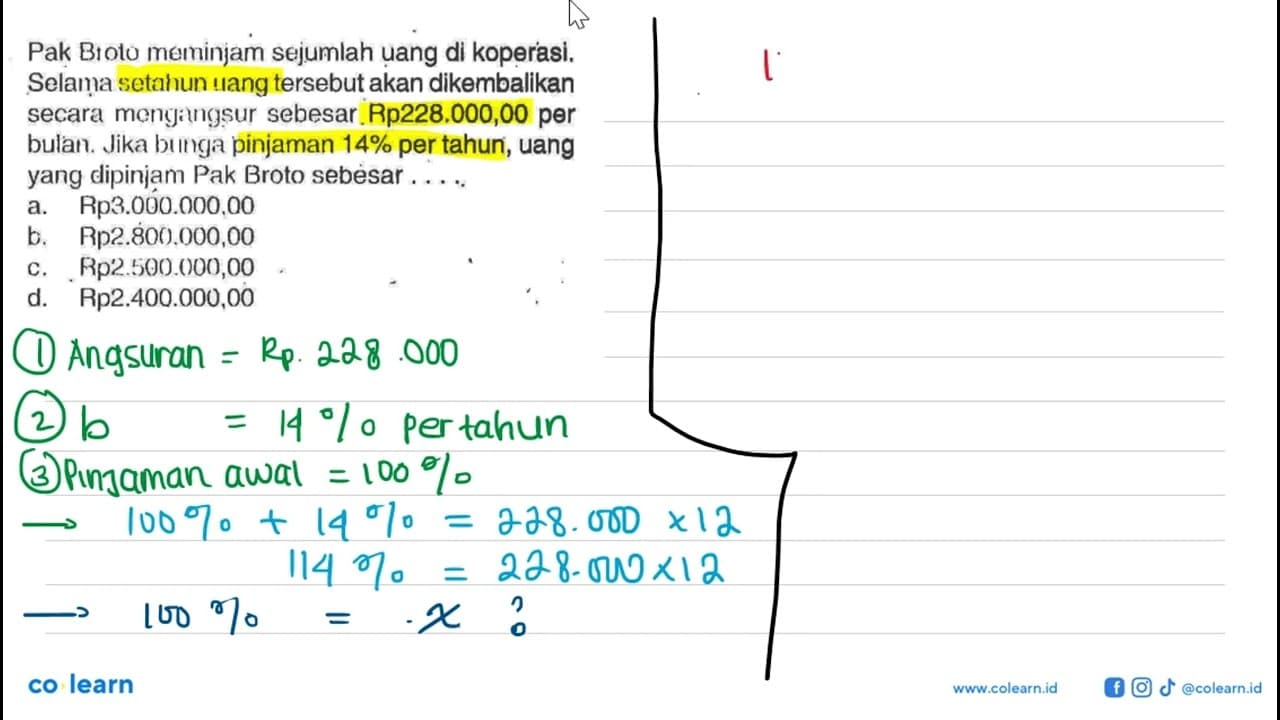 Pak Broto meminjam sejumlah uang di koperasi.
Selama setahun uang tersebut akan dikembalikan
secara mengangsur sebesar Rp228.000,00 per
bulan. Jika bunga pinjaman 14% per tahun, uang
yang dipinjam Pak Broto sebesar . . . .
a. Rp3.000.000,00
b. Rp2.800.000,00
c. Rp2.500.000,00
d. Rp2.400.000,00
① Angsuran = Rp. 228.000
② b = 14% per tahun
③ Pinjaman awal = 100%
→ 100% + 14% = 228.000 × 12
114% = 228.000 × 12
→ 100% = x ?
1
co·learn
www.colearn.id
@colearn.id